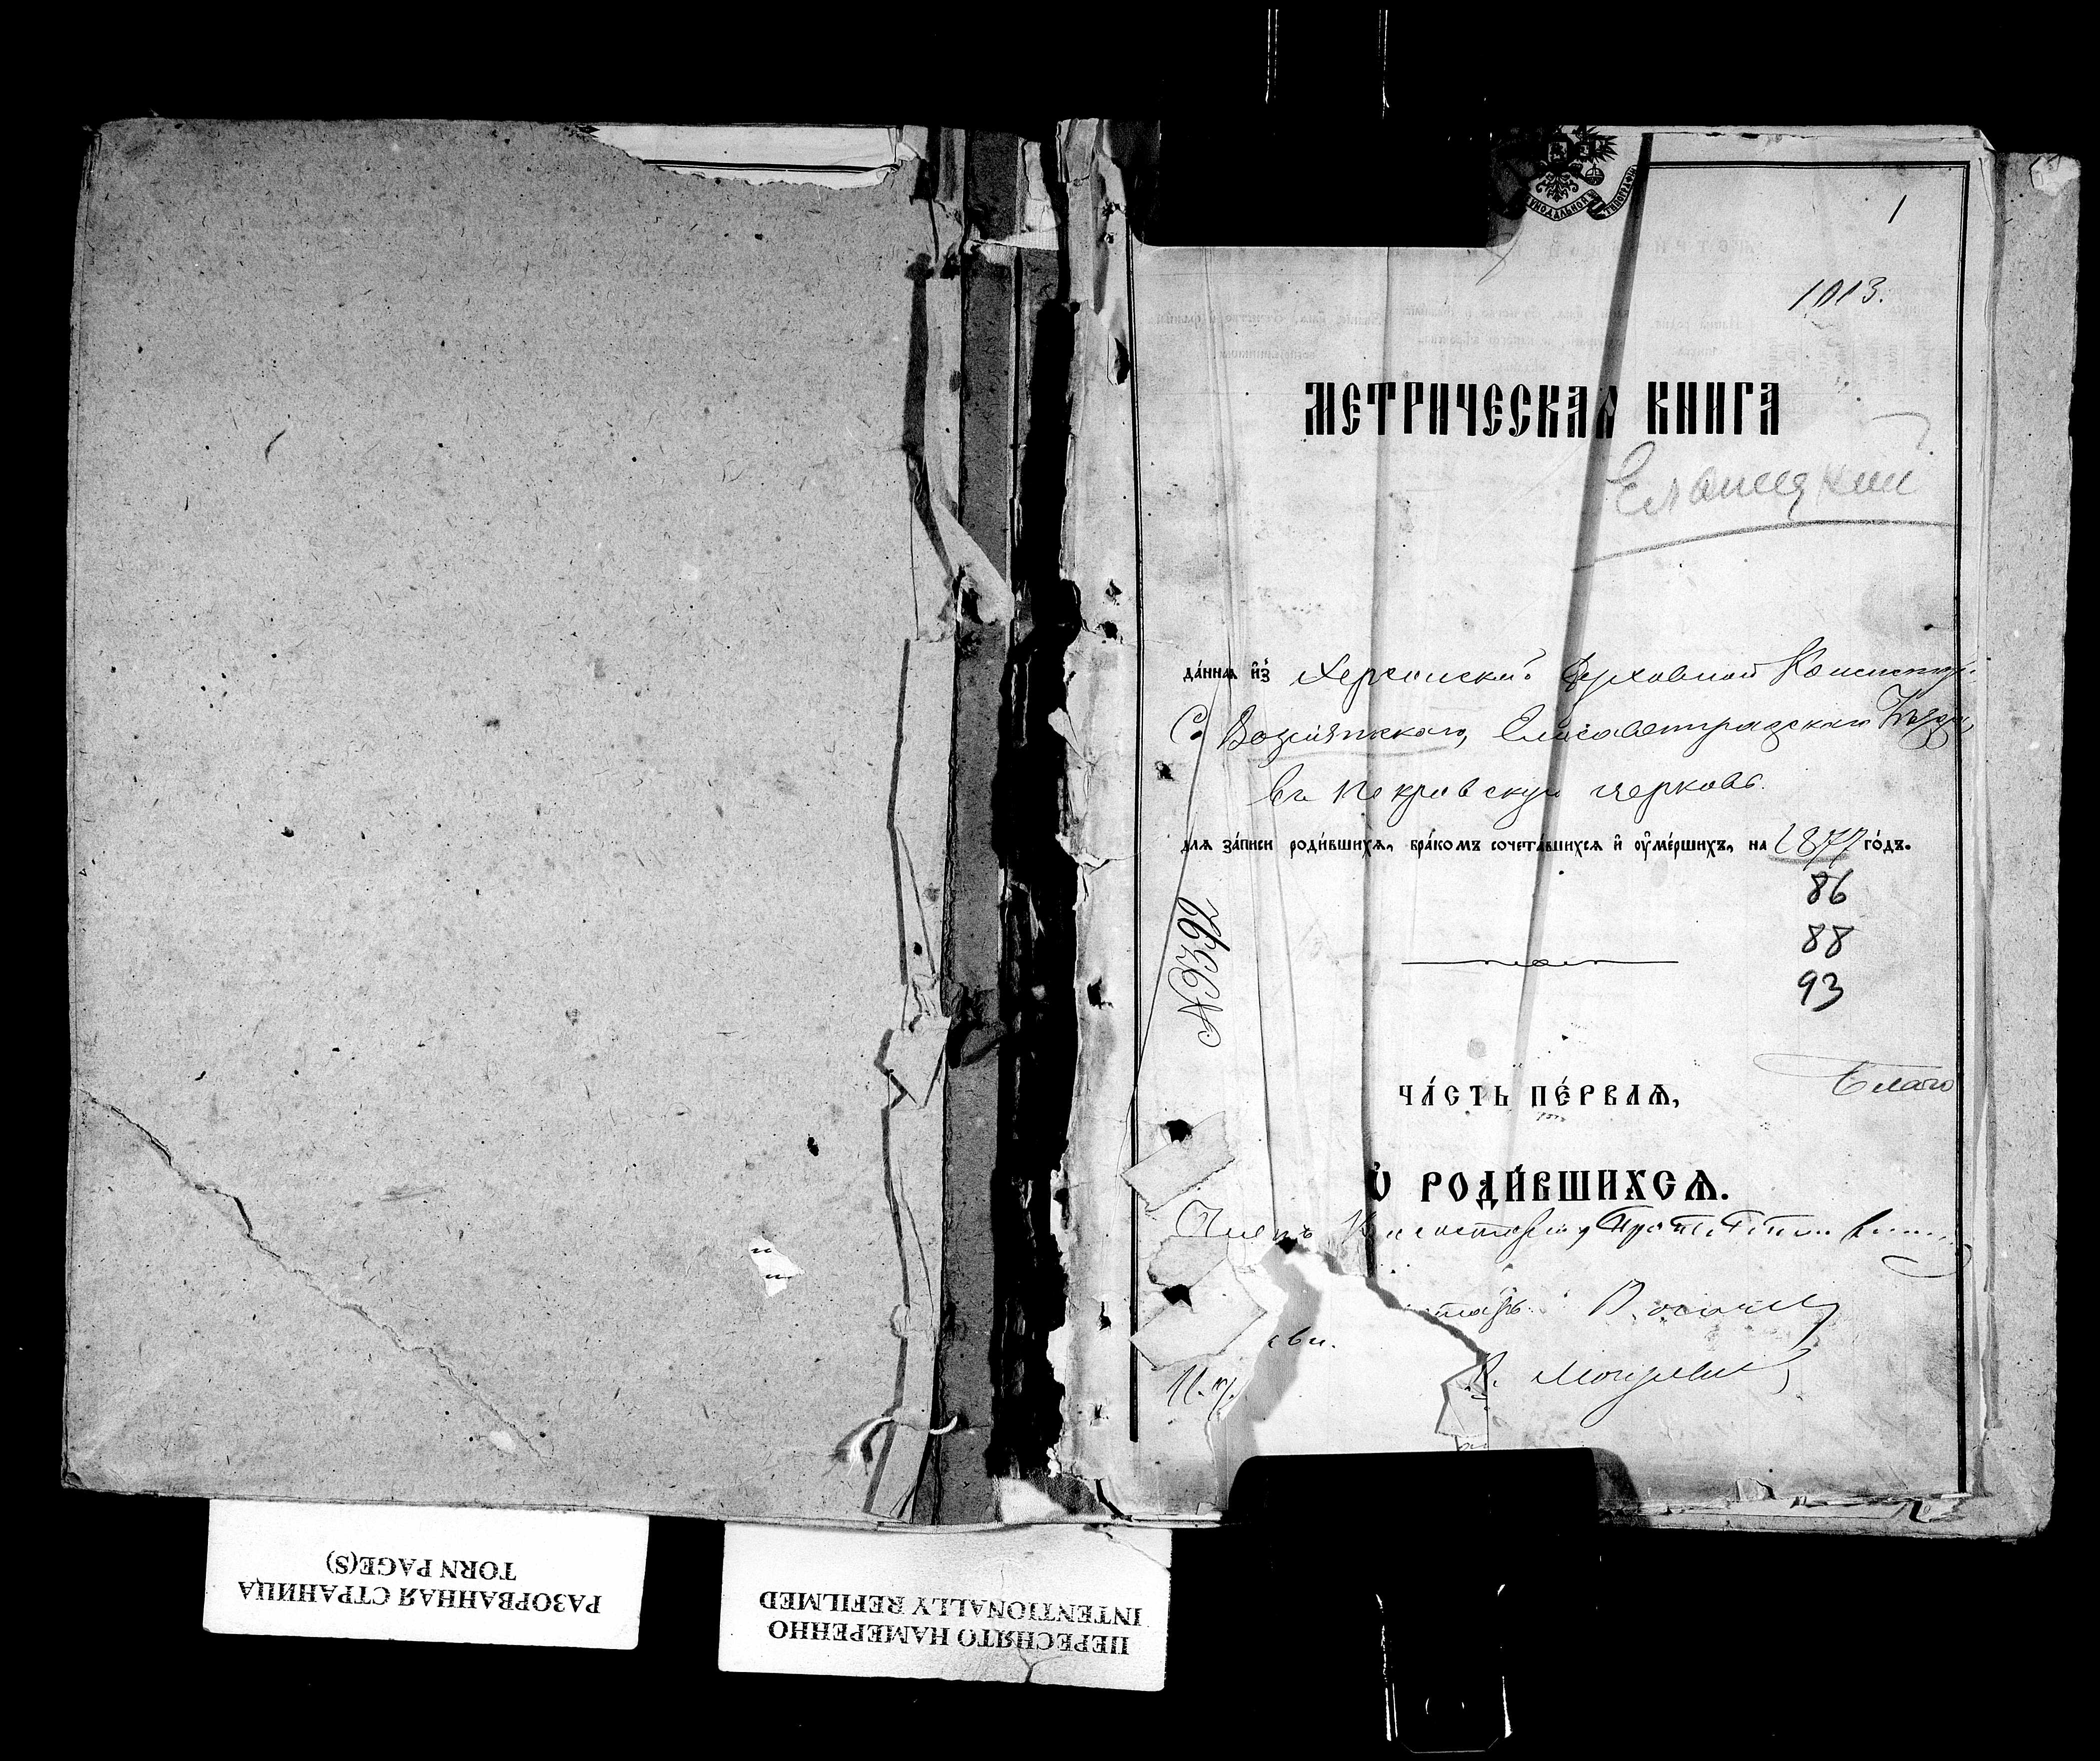 1
1013.
МЕТРИЧЕСКАЯ КНИГА
Еланецкий
да́ннаѧ и҆з̾ Херсонской Духовной Консистор.
С. Вознесенского, Елисаветградского Уѣзда,
въ Покровскую церковь.
длѧ за́писи роди́вшихсѧ, бра́комъ сочета́вшихсѧ и҆ оу҆ме́ршихъ, на 1877 го́дъ.
86
88
93
№ 9392
ЧА́СТЬ ПЕ́РВАѦ,
Благо
Ѽ РОДИ́ВШИХСѦ.
Членъ Консисторіи, Прот.
РАЗОРВАННАЯ СТРАНИЦА
TORN PAGE(S)
ПЕРЕСНЯТО НАМЕРЕННО
INTENTIONALLY REFILMED